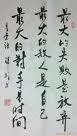 最大的失败是放弃
最大的敌人是自己
最大的對手是时间